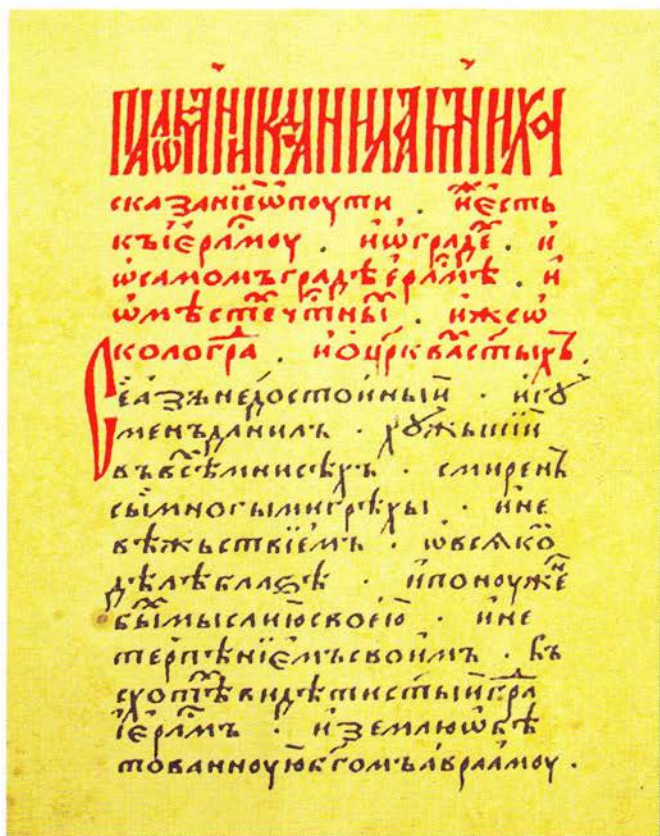 сказанїеѡпоути . и҆є҆сть
къі҆єр҇лмоу . и҆ѡградѣ . и҆
ѡсамомъградѣер҇лмѣ . и҆
ѡмѣстеⷯчтⷭныⷯ . и҆жеѡ
колограⷣ . и҆оцр҃кваⷯстыхъ.
Се҆а҆зънедостоиныи҆ . и҆гꙋ
менъданилъ . хꙋжьшїи҆
въвсѣⷯмнисѣхъ . смиренъ
сыи҆многымигрѣхы . и҆не
вѣжьствїемъ . ѡвсѧкоⷨ
дѣлѣблаѕѣ . и҆поноуженⷩ҇
быⷯмыслиюсвоею . и҆не
терпѣнїємъсвоимъ . въ
схотѣⷯвидѣтистыи҆граⷣ
і҆єр҇лмъ . и҆землюѡбѣ
тованноуюбг҃омъа҆враа҆моу .